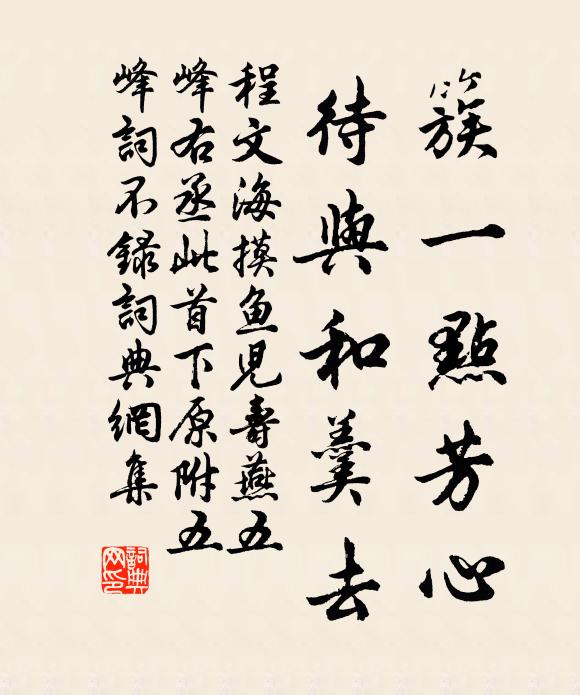 簇一點芳心
待與和羹去
程文海摸魚兒壽燕五
峰右丞此首下原附五
峰詞不錄詞典網集
詞典网印